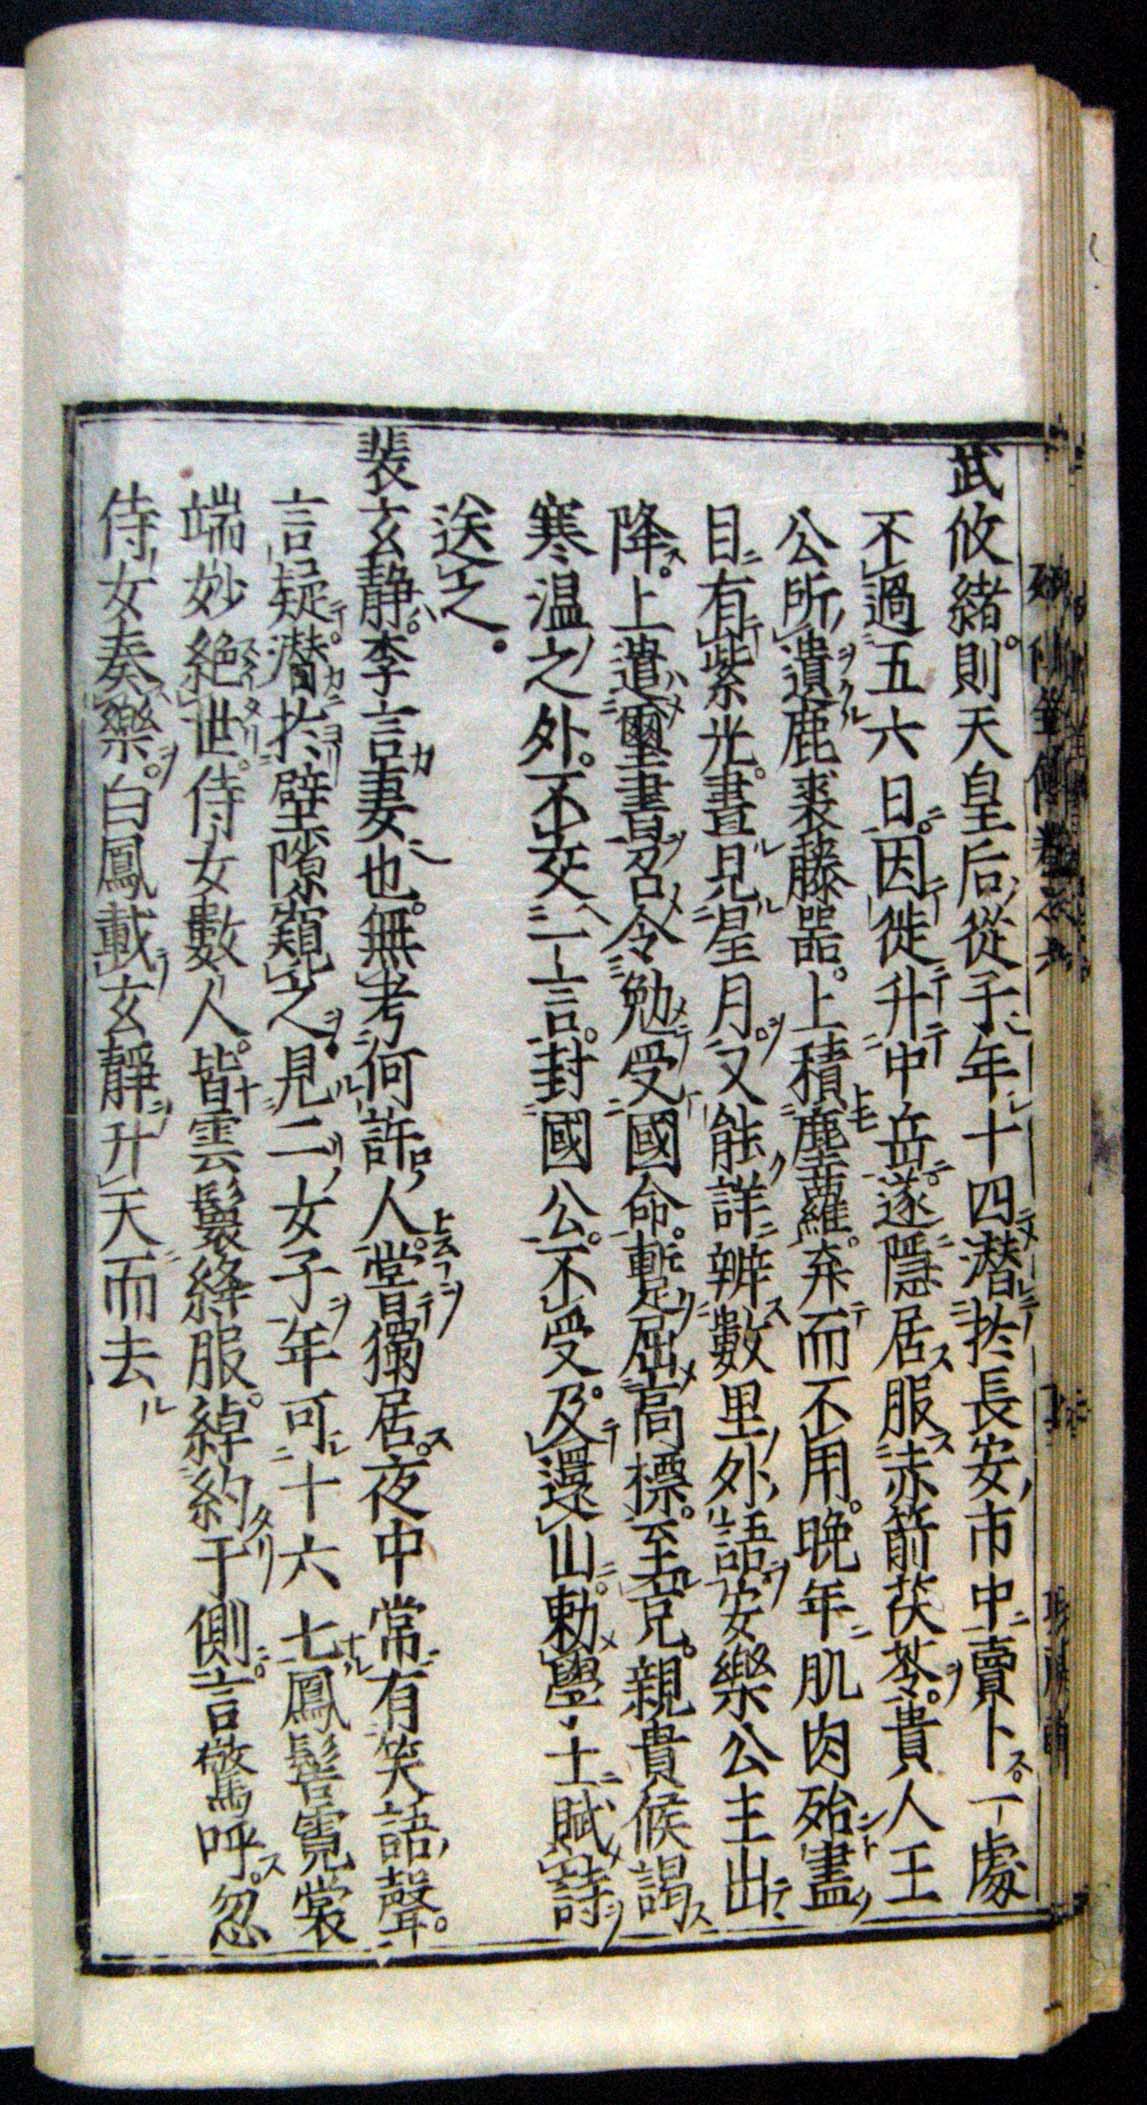 武攸緒。則天皇后從子。年十四潜於長安市中賣卜。一處
不過五六日。因徙升中岳。遂隱居。服赤箭茯苓。貴人王
公所遺鹿裘藤器。上積塵蘿。弃而不用。晚年肌肉殆盡
目有紫光。晝見星月。又能詳辨數里外語。安樂公主出
降。上遣璽書召令勉受國命。暫屈高標。至京。親貴候謁
寒温之外。不交一言。封國公。不受。及還山。勅學士賦詩
送之。
裴玄静。李言妻也。無考何許人。嘗獨居。夜中常有笑語聲。
言疑潜於壁隙窺之。見二女子。年可十六七。鳳髻霓裳
端妙絶世。侍女數人。皆雲鬟絳服。綽約于側。言驚呼。忽
侍女奏樂。白鳳載玄静升天而去